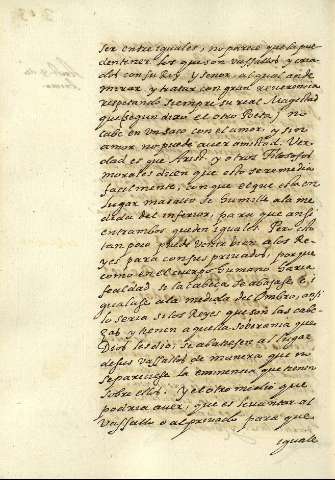 ser entre iguales, no parece que la pue
den tener los que son vassallos y cria
dos con su Rey y señor, al qual an de
mirar y tratar con gran reverencia
respetando siempre su real Magestad
que segun dixo el otro Poeta) no
cabe en un saco con el amor, y sin
amor no puede aver amistad. Ver
dad es que Arist. y otros Filosofos
morales dicen que esto se remedia
facilmente, con que el que esta en
lugar mas alto se humille a la me
dida del inferior, para que ansi
entrambos queden iguales. Pero esto
tan poco puede venir bien a los Re
yes para con sus privados, porque
como en el cuerpo humano haria
fealdad si la cabeça se abajase e i
gualase a la medida del ombro, ansi
lo seria si los Reyes que son las cabe
zas y tienen aquella soberania que
Dios les dio, se abatiesen al lugar
de sus vassallos de manera que no
se pareciese la eminencia que tienen
sobre ellos. Y el otro medio que
podria aver, que es levantar al
vassallo o al privado para que
iguale